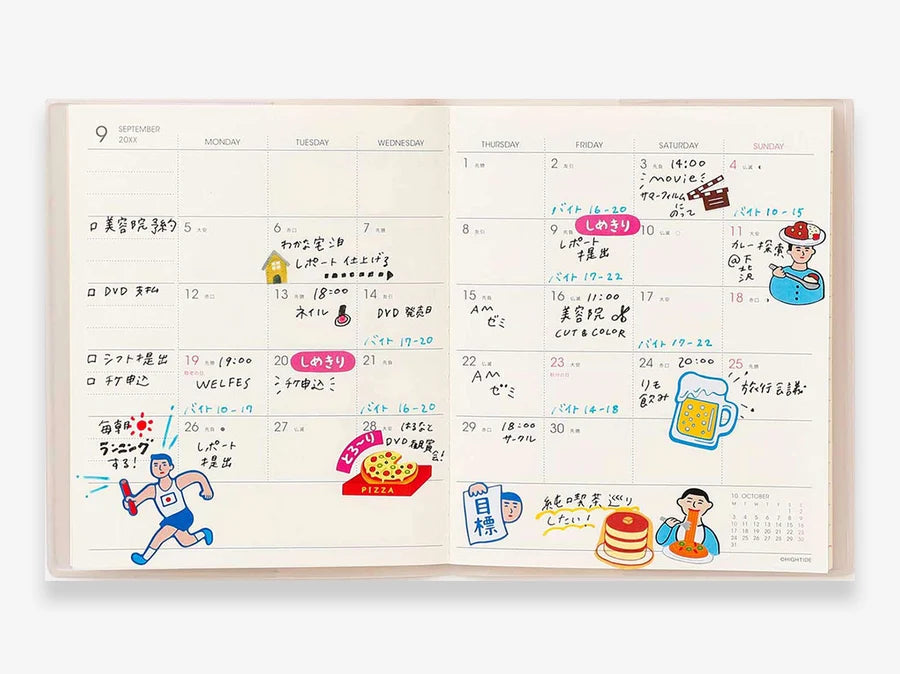 9 SEPTEMBER
20XX
MONDAY TUESDAY WEDNESDAY
THURSDAY FRIDAY SATURDAY SUNDAY
1 先勝
2 友引
バイト 16-20
3 先負 14:00
movie
サマーフィルム
にのって
4 仏滅
バイト 10-15
□ 美容院予約
5 大安
6 赤口
わかな宅泊
レポート 仕上げる
7 先勝
8 友引
9 先負
しめきり
レポート
提出
バイト 17-22
10 仏滅
11 大安
カレー探索
@下
北
沢
□ DVD 支払
12 赤口
13 先勝 18:00
ネイル
14 友引
DVD 発売日
バイト 17-20
15 先負
AM
ゼミ
16 仏滅 11:00
美容院
CUT & COLOR
17 大安
バイト 17-22
18 赤口
□ シフト提出
□ チケ申込
19 先勝 19:00
敬老の日
WELFES
バイト 10-17
20
しめきり
チケ申込
21 先負
バイト 16-20
22 仏滅
AM
ゼミ
23 大安
秋分の日
バイト 14-18
24 赤口 20:00
りも
飲み
25 先勝
旅行会議
毎朝
ランニング
する!
26 先負
レポート
提出
27 仏滅
28 大安 はるなと
DVD観賞
会!
とろ〜り
PIZZA
29 赤口 18:00
サークル
30 先勝
目
標
純喫茶巡り
したい!
10 OCTOBER
M T W T F S S
1 2
3 4 5 6 7 8 9
10 11 12 13 14 15 16
17 18 19 20 21 22 23
24 25 26 27 28 29 30
31
©HIGHTIDE